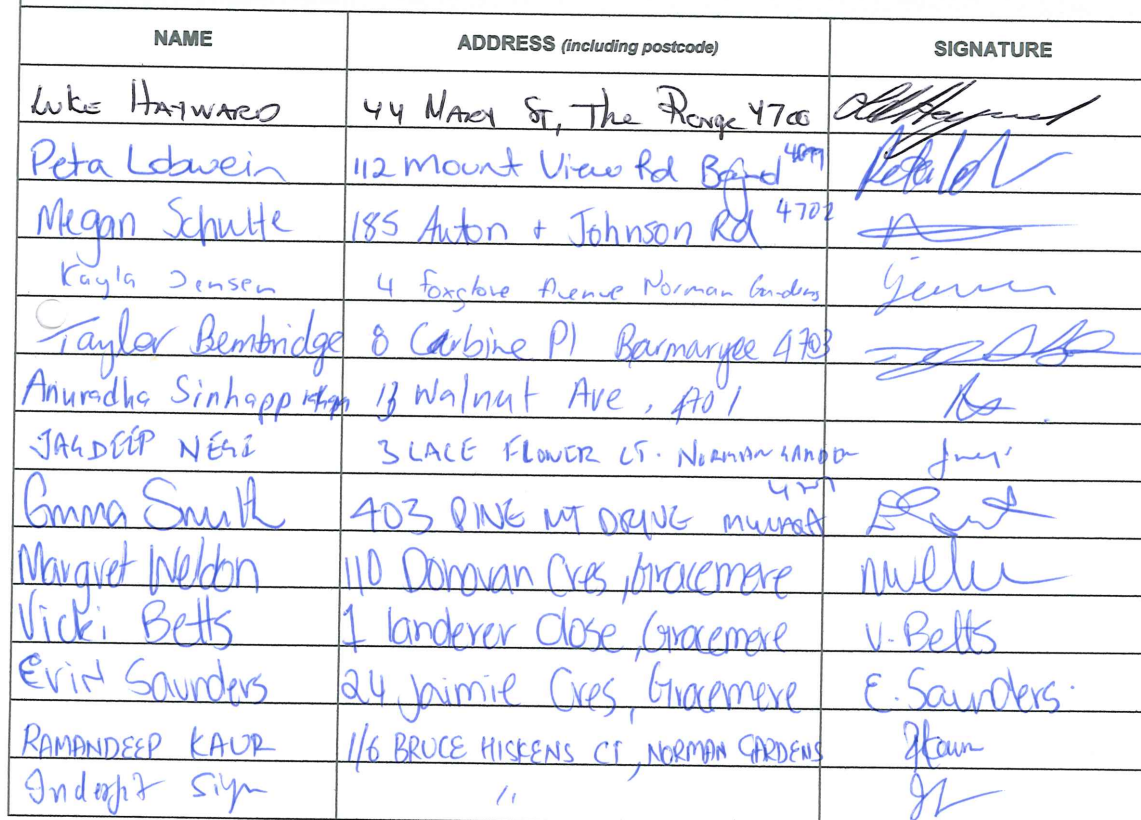 NAME ADDRESS (including postcode) SIGNATURE
Luke HAYWARD 44 MARY ST, The Range 4700
Peta Lobwein 112 Mount View Rd 4699
Megan Schulte 185 Auton + Johnson Rd 4702
Kayla Jensen 4 foxglove Avenue Norman Gardens
Taylor Bembridge 8 Carbine Pl Barmaryee 4703
Anuradha 13 Walnut Ave,
JAGDEEP NEGI 3 LACE FLOWER CT. NORMAN GARDEN
Emma Smith 403 PINE MT DRIVE
Margret Weldon 110 Donovan Cres, Gracemere
Vicki Betts 1 landerer Close, Gracemere V. Betts
Erin Saunders 24 Jaimie Cres, Gracemere E. Saunders.
RAMANDEEP KAUR 1/6 BRUCE HISKENS CT, NORMAN GARDENS
Inderjit "